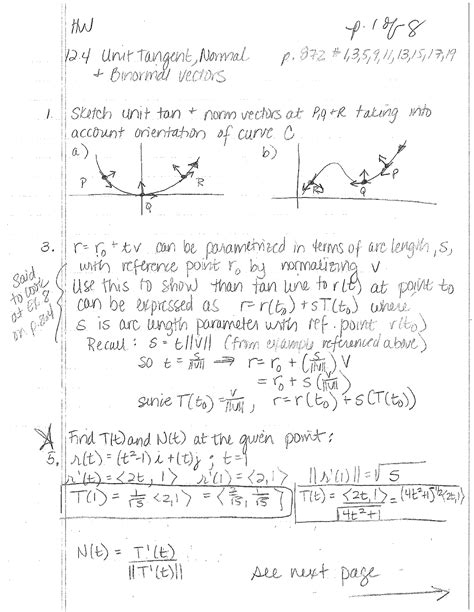 HW
p. 1 of 8
12.4 Unit Tangent, Normal
+ Binormal Vectors
p. 872 # 1,3,5,9,11,13,15,17,19
1. Sketch unit tan + norm vectors at P, Q + R taking into
account orientation of curve C
a)
b)
P
Q
R
R
Q
P
3. r = r₀ + tv can be parametrized in terms of arc length, s,
with reference point r₀ by normalizing v
Said
to look
at Ex. 8
on
Use this to show than tan line to r(t) at point t₀
can be expressed as r = r(t₀) + sT(t₀) where
s is arc length parameter with ref. point r(t₀)
Recall: s = t||v|| (from example referenced above)
so t = s/||v|| ⇒ r = r₀ + (s/||v||) v
= r₀ + s(v/||v||)
since T(t₀) = v/||v||, r = r(t₀) + s(T(t₀))
5. Find T(t) and N(t) at the given point:
r(t) = (t²-1)i + (t)j ; t=1
r'(t) = <2t, 1> r'(1) = <2, 1> ||r'(1)|| = √5
T(1) = 1/√5 <2,1> = <2/√5, 1/√5>
T(t) = <2t, 1>/√(4t²+1) = (4t²+1)^(-1/2) <2t, 1>
N(t) = T'(t)/||T'(t)||
see next page